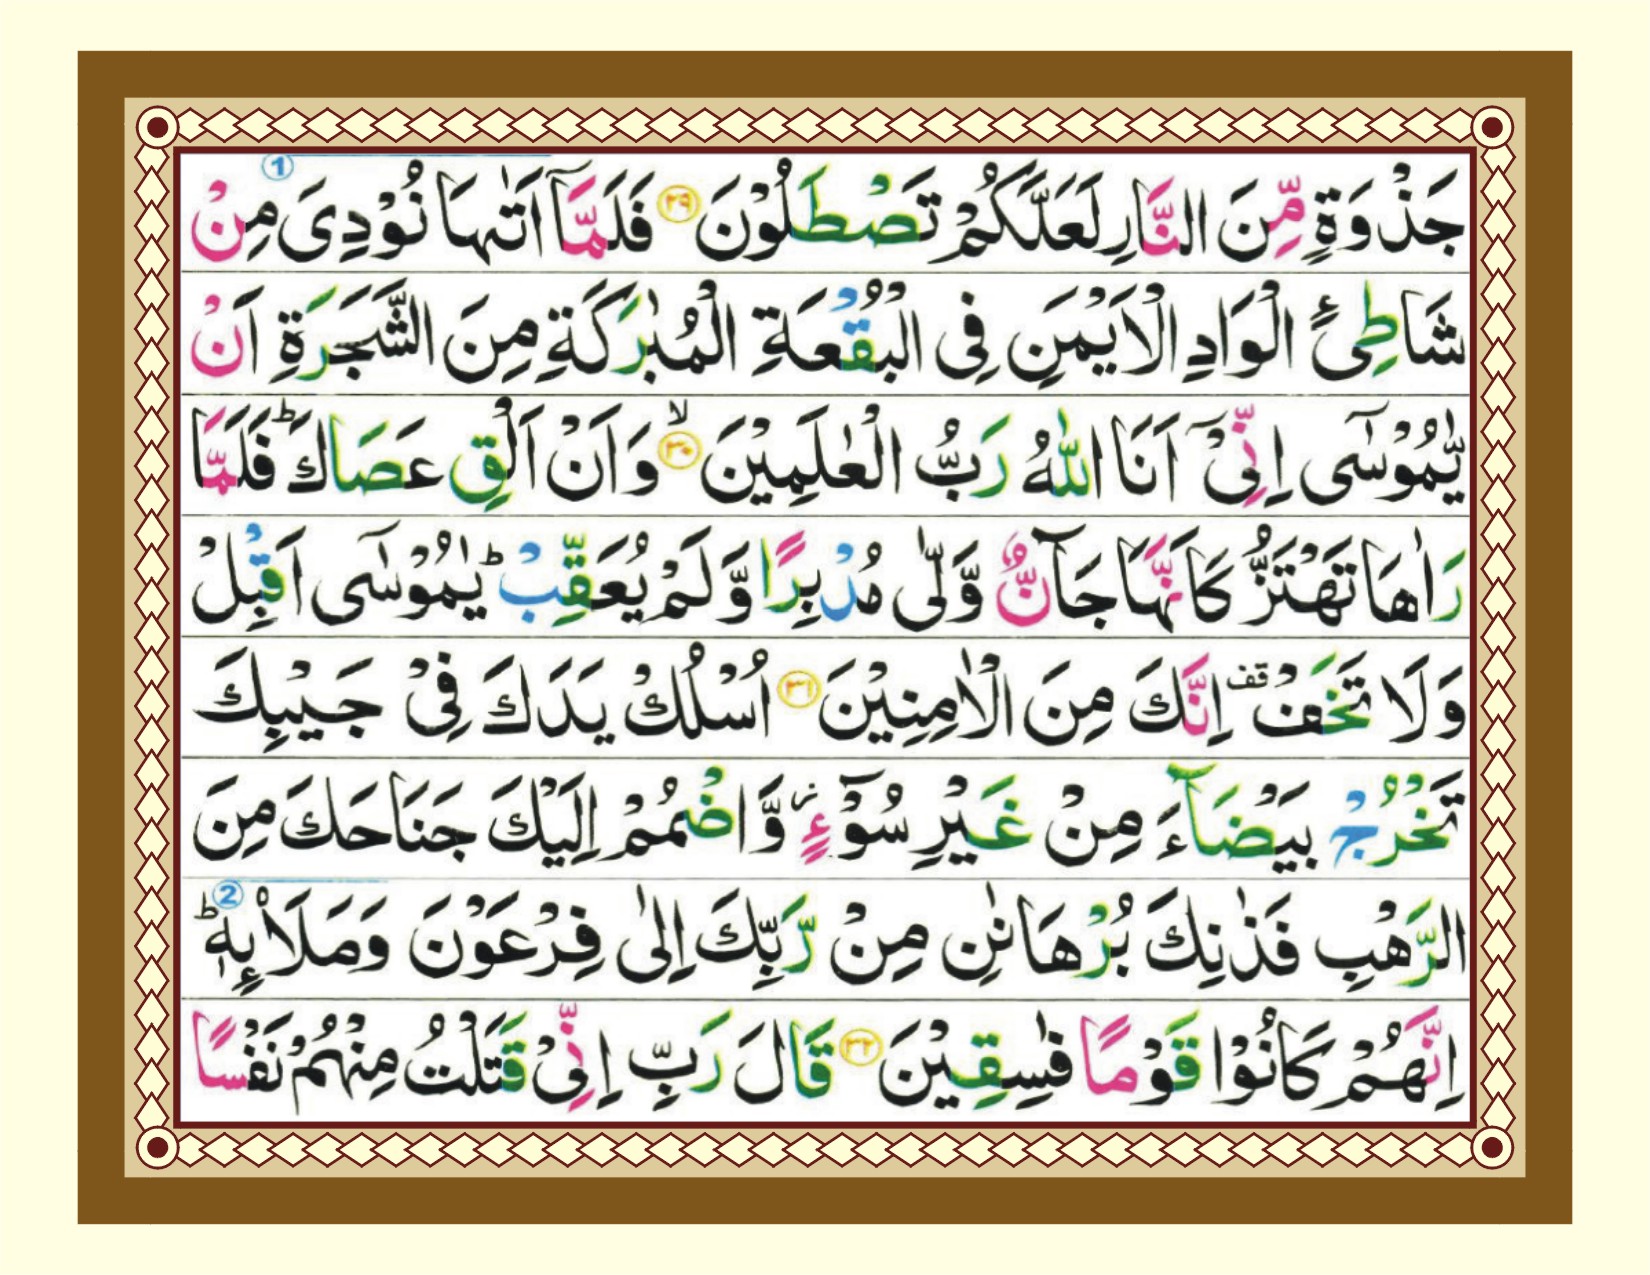 جَذْوَةٍ مِّنَ النَّارِ لَعَلَّكُمْ تَصْطَلُوْنَ ﴿۲۹﴾ فَلَمَّاۤ اَتٰىهَا نُوْدِیَ مِنْ ①
شَاطِئِ الْوَادِ الْاَیْمَنِ فِی الْبُقْعَةِ الْمُبٰرَكَةِ مِنَ الشَّجَرَةِ اَنْ
یّٰمُوْسٰۤی اِنِّیْۤ اَنَا اللّٰهُ رَبُّ الْعٰلَمِیْنَ ﴿۳۰﴾ۙ وَاَنْ اَلْقِ عَصَاكَ ؕ فَلَمَّا
رَاٰهَا تَهْتَزُّ كَاَنَّهَا جَآنٌّ وَّلّٰی مُدْبِرًا وَّلَمْ یُعَقِّبْ ؕ یٰمُوْسٰۤی اَقْبِلْ
وَلَا تَخَفْ قف اِنَّكَ مِنَ الْاٰمِنِیْنَ ﴿۳۱﴾ اُسْلُكْ یَدَكَ فِیْ جَیْبِكَ
تَخْرُجْ بَیْضَآءَ مِنْ غَیْرِ سُوْٓءٍ ز وَّاضْمُمْ اِلَیْكَ جَنَاحَكَ مِنَ
الرَّهْبِ فَذٰنِكَ بُرْهَانٰنِ مِنْ رَّبِّكَ اِلٰی فِرْعَوْنَ وَمَلَا۟ىِٕهٖ ؕ ②
اِنَّهُمْ كَانُوْا قَوْمًا فٰسِقِیْنَ ﴿۳۲﴾ قَالَ رَبِّ اِنِّیْ قَتَلْتُ مِنْهُمْ نَفْسًا